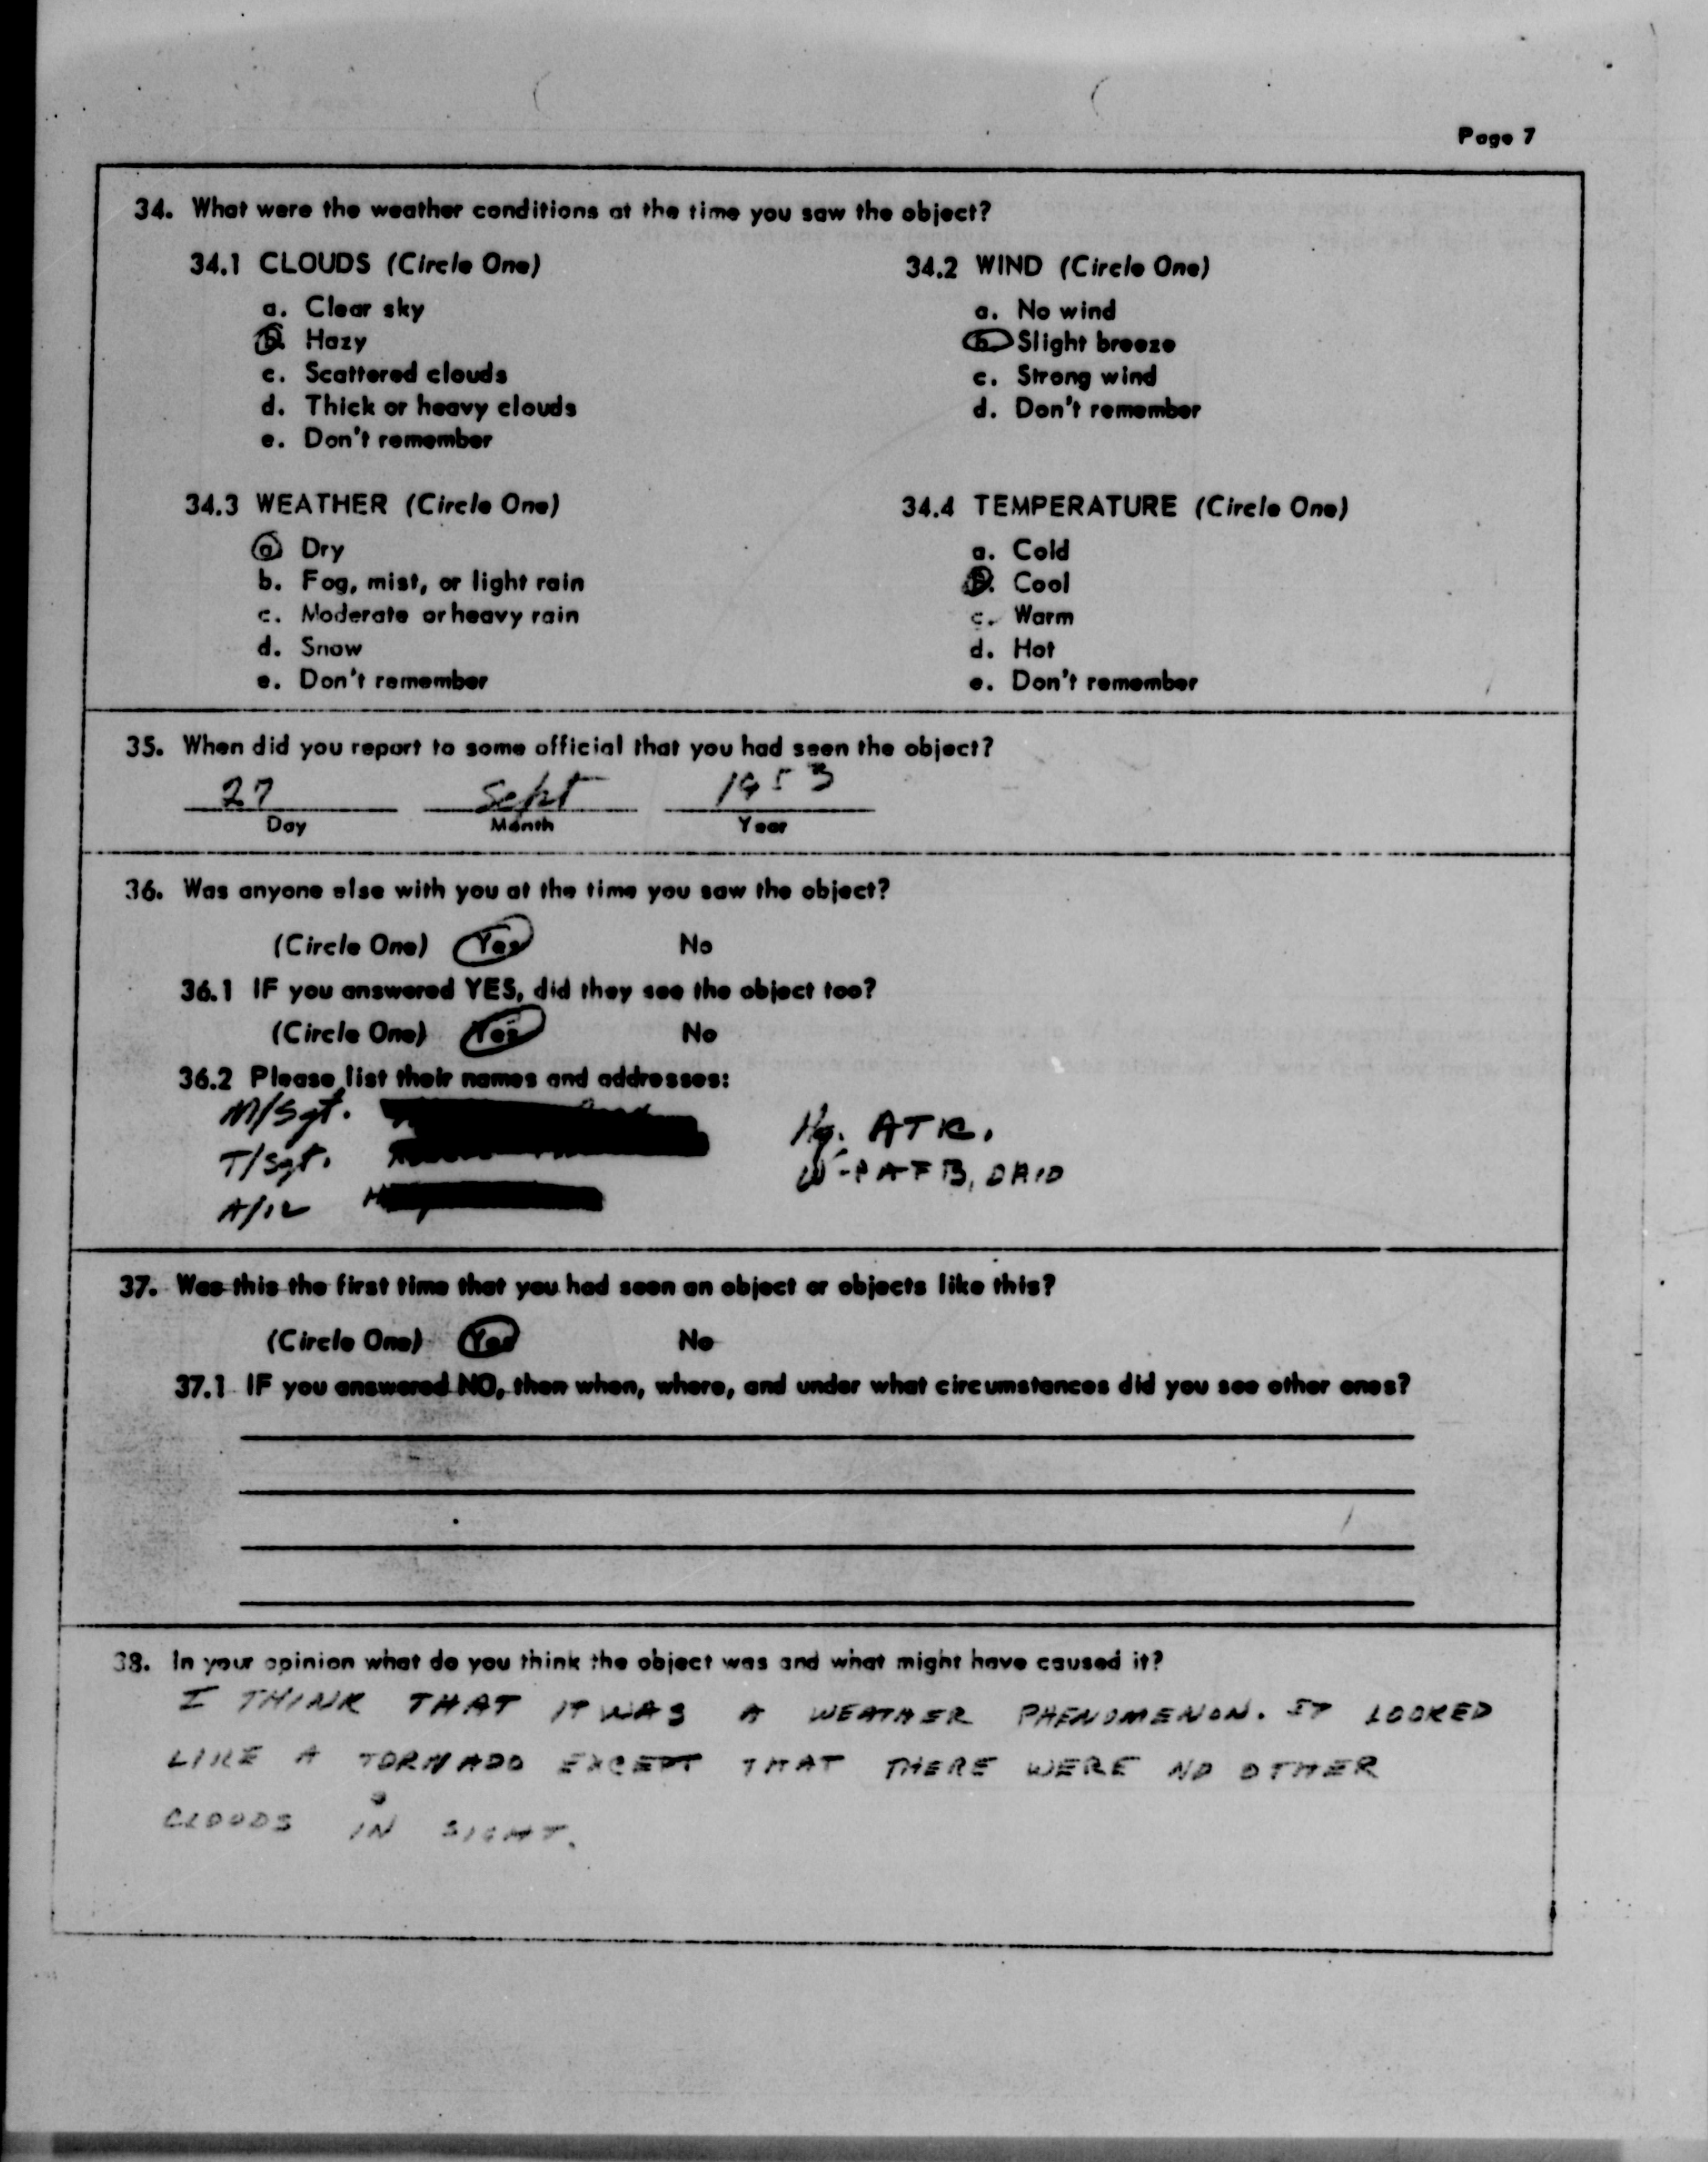 Page 7
34. What were the weather conditions at the time you saw the object?
34.1 CLOUDS (Circle One)
a. Clear sky
b. Hazy
c. Scattered clouds
d. Thick or heavy clouds
e. Don't remember
34.2 WIND (Circle One)
a. No wind
b. Slight breeze
c. Strong wind
d. Don't remember
34.3 WEATHER (Circle One)
a. Dry
b. Fog, mist, or light rain
c. Moderate or heavy rain
d. Snow
e. Don't remember
34.4 TEMPERATURE (Circle One)
a. Cold
b. Cool
c. Warm
d. Hot
e. Don't remember
35. When did you report to some official that you had seen the object?
27 Sept 1953
Day Month Year
36. Was anyone else with you at the time you saw the object?
(Circle One) Yes No
36.1 IF you answered YES, did they see the object too?
(Circle One) Yes No
36.2 Please list their names and addresses:
M/Sgt.
T/Sgt.
Hq. ATR.
W-PAFB, OHIO
37. Was this the first time that you had seen an object or objects like this?
(Circle One) Yes No
37.1 IF you answered NO, then when, where, and under what circumstances did you see other ones?
38. In your opinion what do you think the object was and what might have caused it?
I THINK THAT IT WAS A WEATHER PHENOMENON. IT LOOKED
LIKE A TORNADO EXCEPT THAT THERE WERE NO OTHER
CLOUDS IN SIGHT.